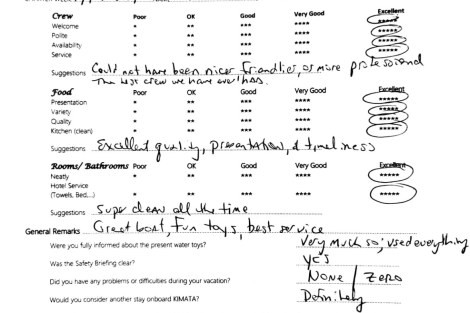 Crew Poor OK Good Very Good Excellent
Welcome * ** *** **** *****
Polite * ** *** **** *****
Availability * ** *** **** *****
Service * ** *** **** *****
Suggestions Could not have been nicer friendlier, or more professional
The best crew we have ever had.
Food Poor OK Good Very Good Excellent
Presentation * ** *** **** *****
Variety * ** *** **** *****
Quality * ** *** **** *****
Kitchen (clean) * ** *** **** *****
Suggestions Excellent quality, presentation, & timeliness
Rooms/Bathrooms Poor OK Good Very Good Excellent
Neatly * ** *** **** *****
Hotel Service
(Towels, Bed,...) * ** *** **** *****
Suggestions Super clean all the time
General Remarks Great boat, fun toys, best service
Were you fully informed about the present water toys? Very much so; used everything
Was the Safety Briefing clear? yes
Did you have any problems or difficulties during your vacation? None / Zero
Would you consider another stay onboard KIMATA? Definitely